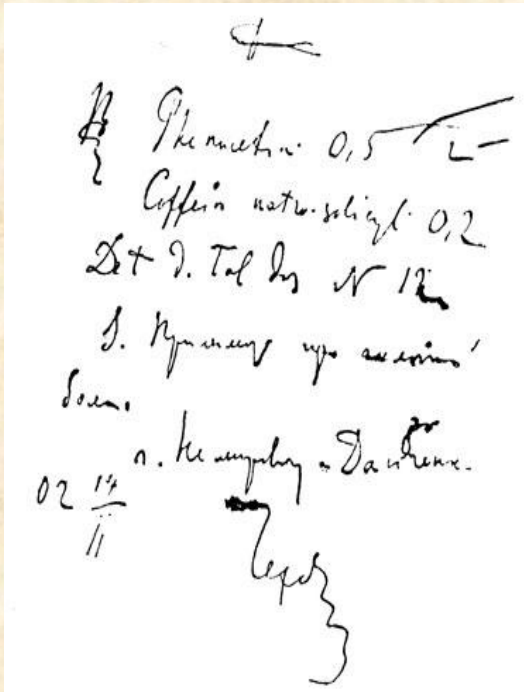 Phenacetini 0,5
Coffein natro-salicyl. 0,2
D. t. d. Tal Dos N 12
S. при головной
боли.
г. Немировичу-Данченко.
02 14/II
Чехов